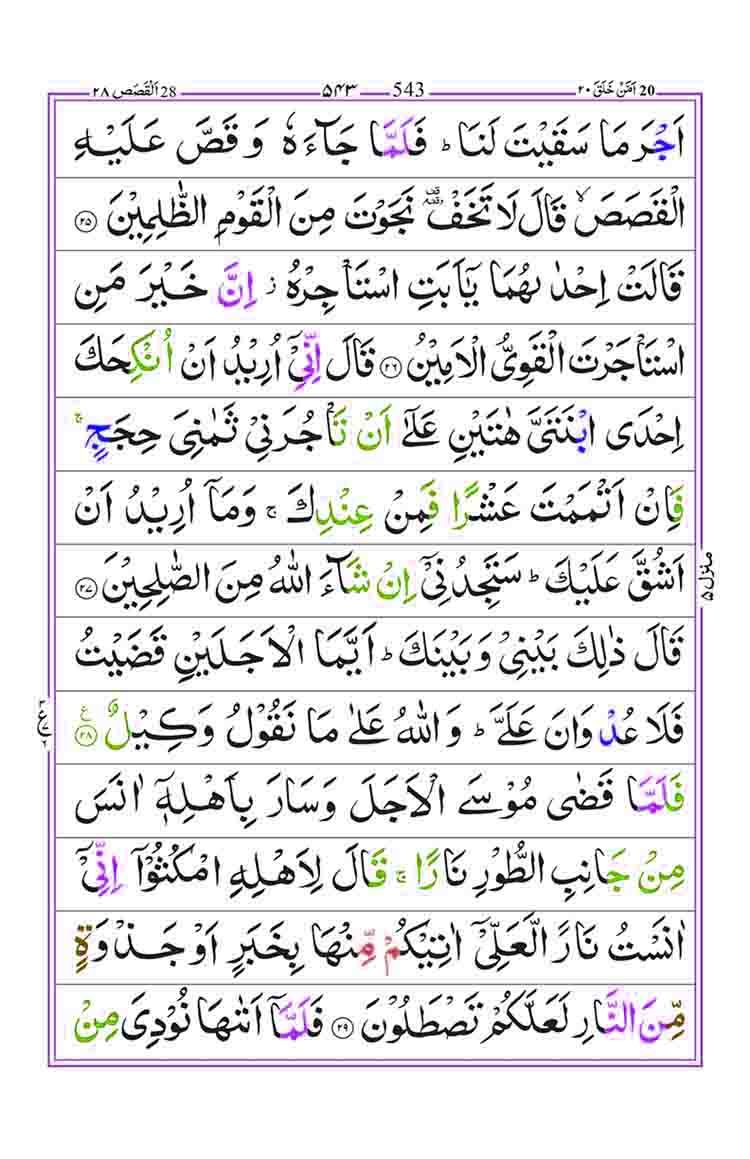 20 اَمَّنْ خَلَقَ ۲۰
543 ۵۴۳
28 اَلْقَصَص ۲۸
اَجْرَ مَا سَقَيْتَ لَنَا ؕ فَلَمَّا جَآءَهٗ وَ قَصَّ عَلَيْهِ
الْقَصَصَ ۙ قَالَ لَا تَخَفْ ۥ۫ نَجَوْتَ مِنَ الْقَوْمِ الظّٰلِمِيْنَ ۲۵
قَالَتْ اِحْدٰىهُمَا يٰۤاَبَتِ اسْتَاْجِرْهُ ؗ اِنَّ خَيْرَ مَنِ
اسْتَاْجَرْتَ الْقَوِيُّ الْاَمِيْنُ ۲۶ قَالَ اِنِّيْۤ اُرِيْدُ اَنْ اُنْكِحَكَ
اِحْدَى ابْنَتَيَّ هٰتَيْنِ عَلٰۤى اَنْ تَاْجُرَنِيْ ثَمٰنِيَ حِجَجٍ ۚ
فَاِنْ اَتْمَمْتَ عَشْرًا فَمِنْ عِنْدِكَ ۚ وَمَاۤ اُرِيْدُ اَنْ
اَشُقَّ عَلَيْكَ ؕ سَتَجِدُنِيْۤ اِنْ شَآءَ اللّٰهُ مِنَ الصّٰلِحِيْنَ ۲۷
قَالَ ذٰلِكَ بَيْنِيْ وَبَيْنَكَ ؕ اَيَّمَا الْاَجَلَيْنِ قَضَيْتُ
فَلَا عُدْوَانَ عَلَيَّ ؕ وَاللّٰهُ عَلٰى مَا نَقُوْلُ وَكِيْلٌ ۲۸ ع
فَلَمَّا قَضٰى مُوْسَى الْاَجَلَ وَسَارَ بِاَهْلِهٖۤ اٰنَسَ
مِنْ جَانِبِ الطُّوْرِ نَارًا ۚ قَالَ لِاَهْلِهِ امْكُثُوْۤا اِنِّيْۤ
اٰنَسْتُ نَارًا لَّعَلِّيْۤ اٰتِيْكُمْ مِّنْهَا بِخَبَرٍ اَوْ جَذْوَةٍ
مِّنَ النَّارِ لَعَلَّكُمْ تَصْطَلُوْنَ ۲۹ فَلَمَّاۤ اَتٰىهَا نُوْدِيَ مِنْ
منزل ۵